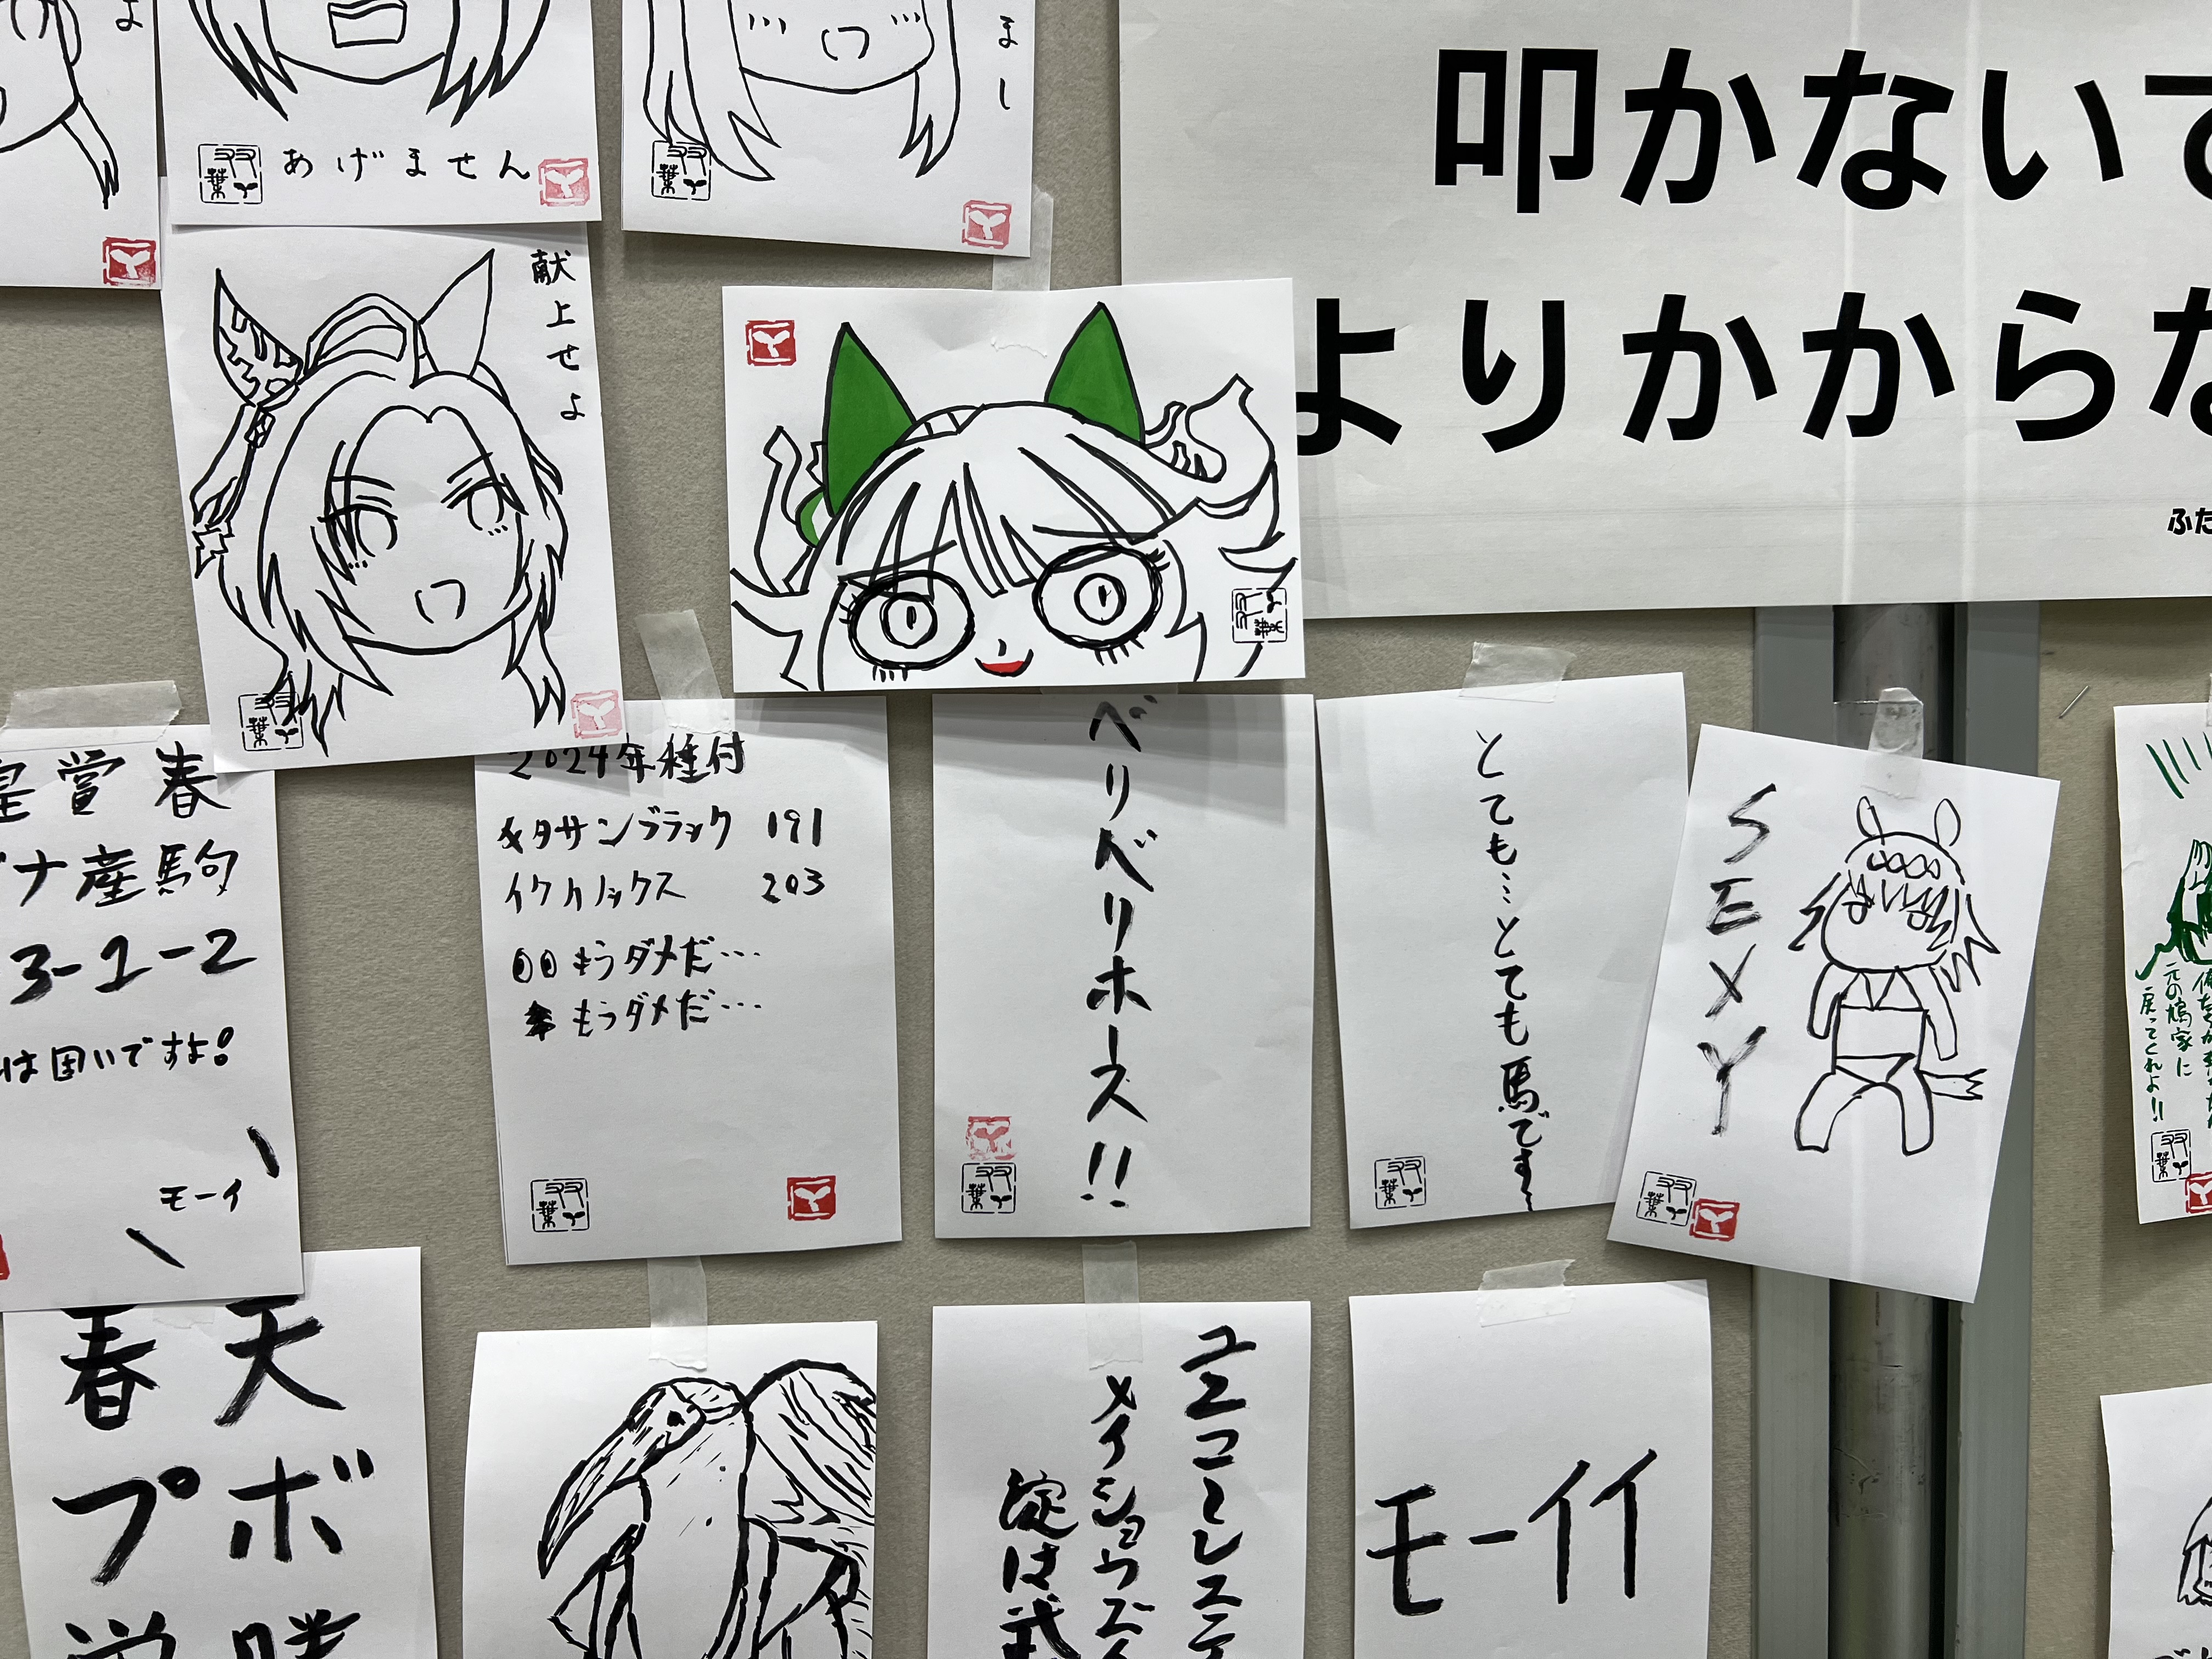 よ
あげません
まし
叩かないで
よりかからな
ふた
献上せよ
双葉
皇賞春
ナ産駒
3-1-2
は囲いですよ!
モーイ
2024年種付
キタサンブラック 191
イクイノックス 203
もうダメだ…
もうダメだ…
ベリベリホース!!
とても…とても馬です
SEXY
元の鳩家に
戻ってくれよ!!
天
春
ボ
プ
勝
ユニコーンステ
メイショウズイ
淀は武
モーイイ